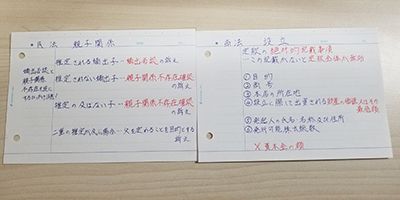 民法 親子関係
推定される嫡出子…嫡出否認の訴え
推定されない嫡出子…親子関係不存在確認
の訴え
推定の及ばない子…親子関係不存在確認
の訴え
二重の推定が及ぶ場合…父を定めることを目的とする
訴え
嫡出否認と
親子関係
不存在確認
商法 設立
定款の絶対的記載事項
→この記載がないと定款全体が無効
①目的
②商号
③本店の所在地
④設立に際して出資される財産の価額又はその
最低額
⑤発起人の氏名・名称及び住所
⑥発行可能株式総数
×資本金の額